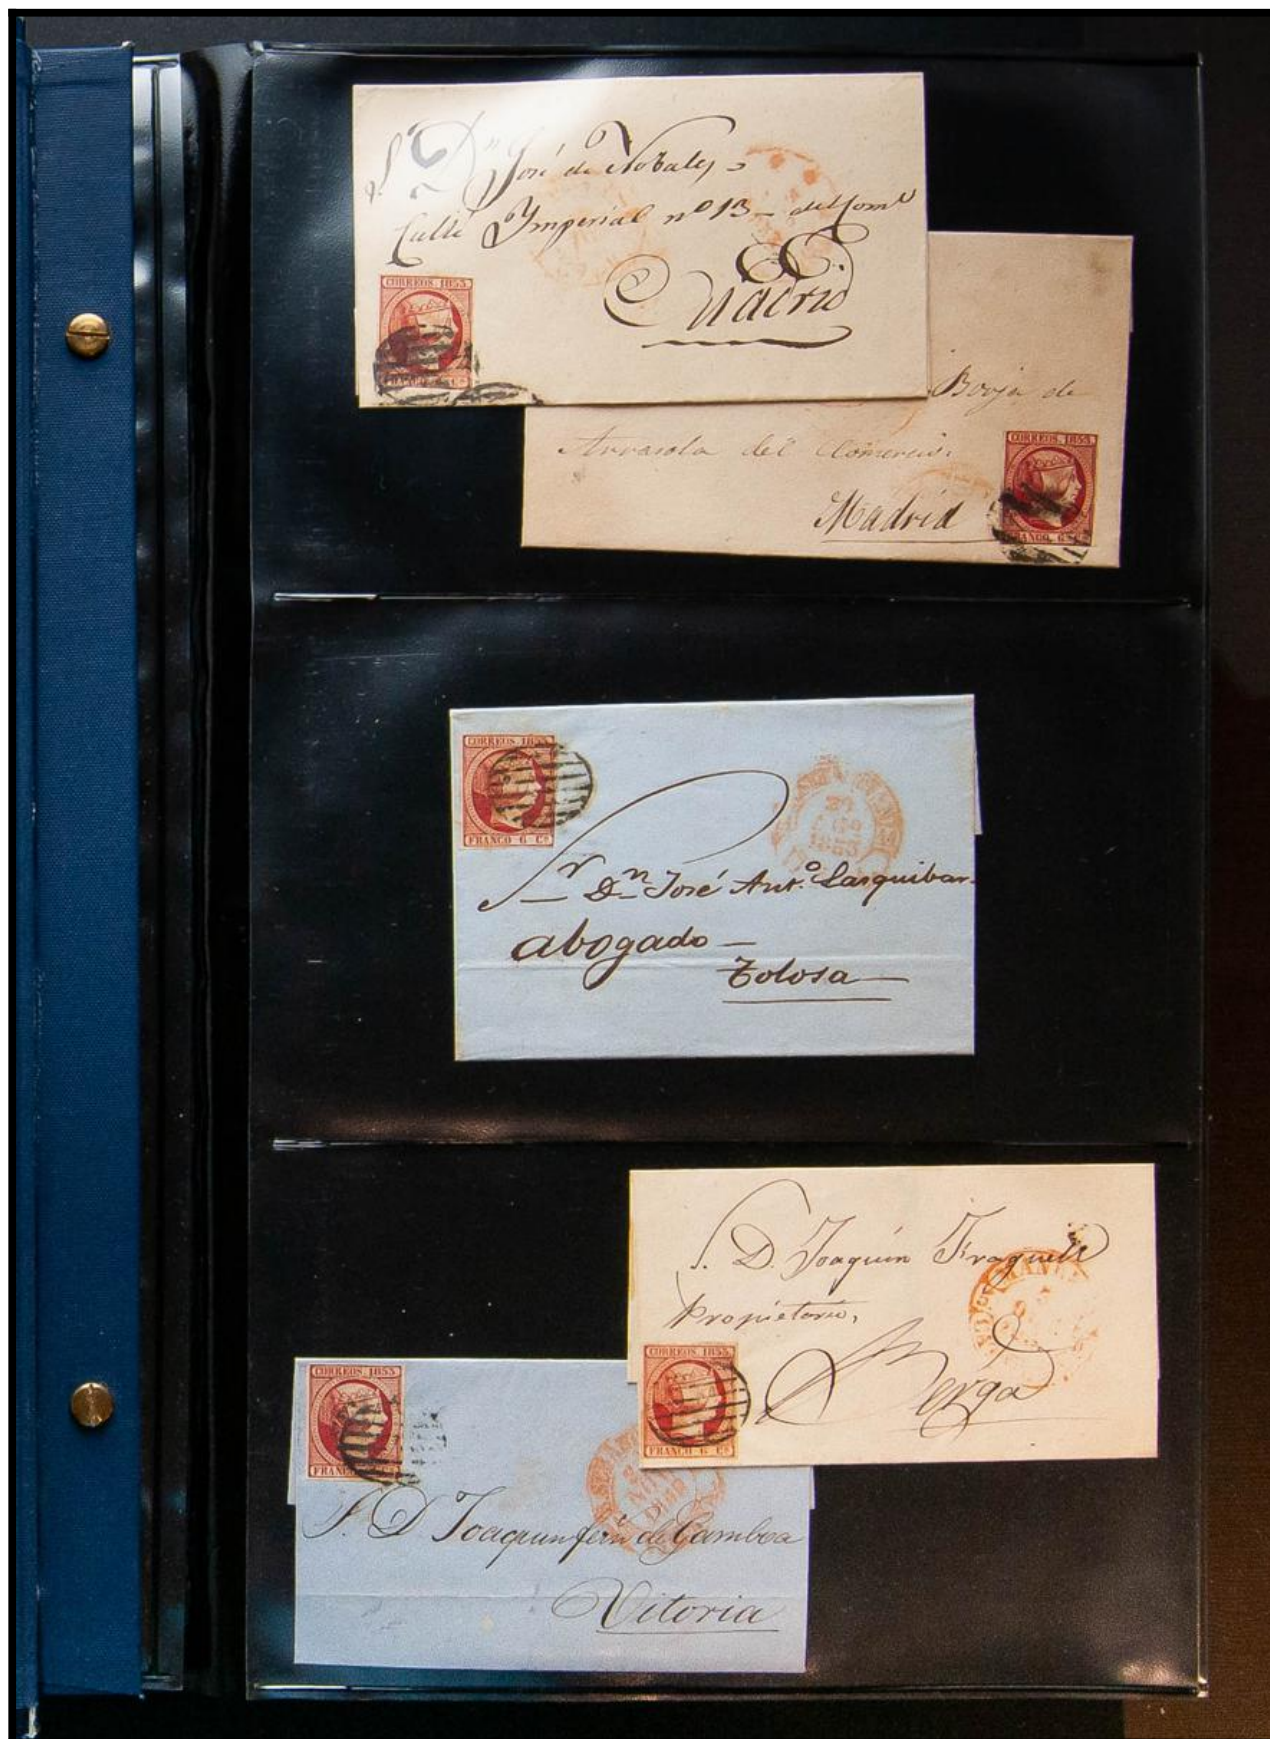 S. Dn José de Nobales
Calle Ymperial nº 13 – del Comº
Madrid
CORREOS. 1853.
FRANCO. 6 Cs
Borja de
Arrasola del Comercio.
Madrid
CORREOS. 1853.
FRANCO. 6 Cs
CORREOS. 1853
FRANCO 6 Cs
1853
Sr Dn José Antº Larquibar
abogado –
Tolosa –
S. D. Joaquín Fraguell
Propietario,
Berga
CORREOS. 1853.
FRANCO 6 Cs
CORREOS. 1853
FRANCO 6 Cs
S. D Joaquin fern de Gamboa
Vitoria